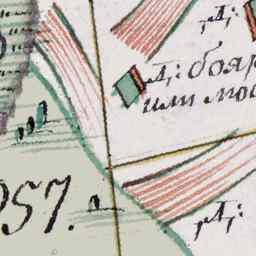 Д:
Д: бояр
или мос
957.
Д: